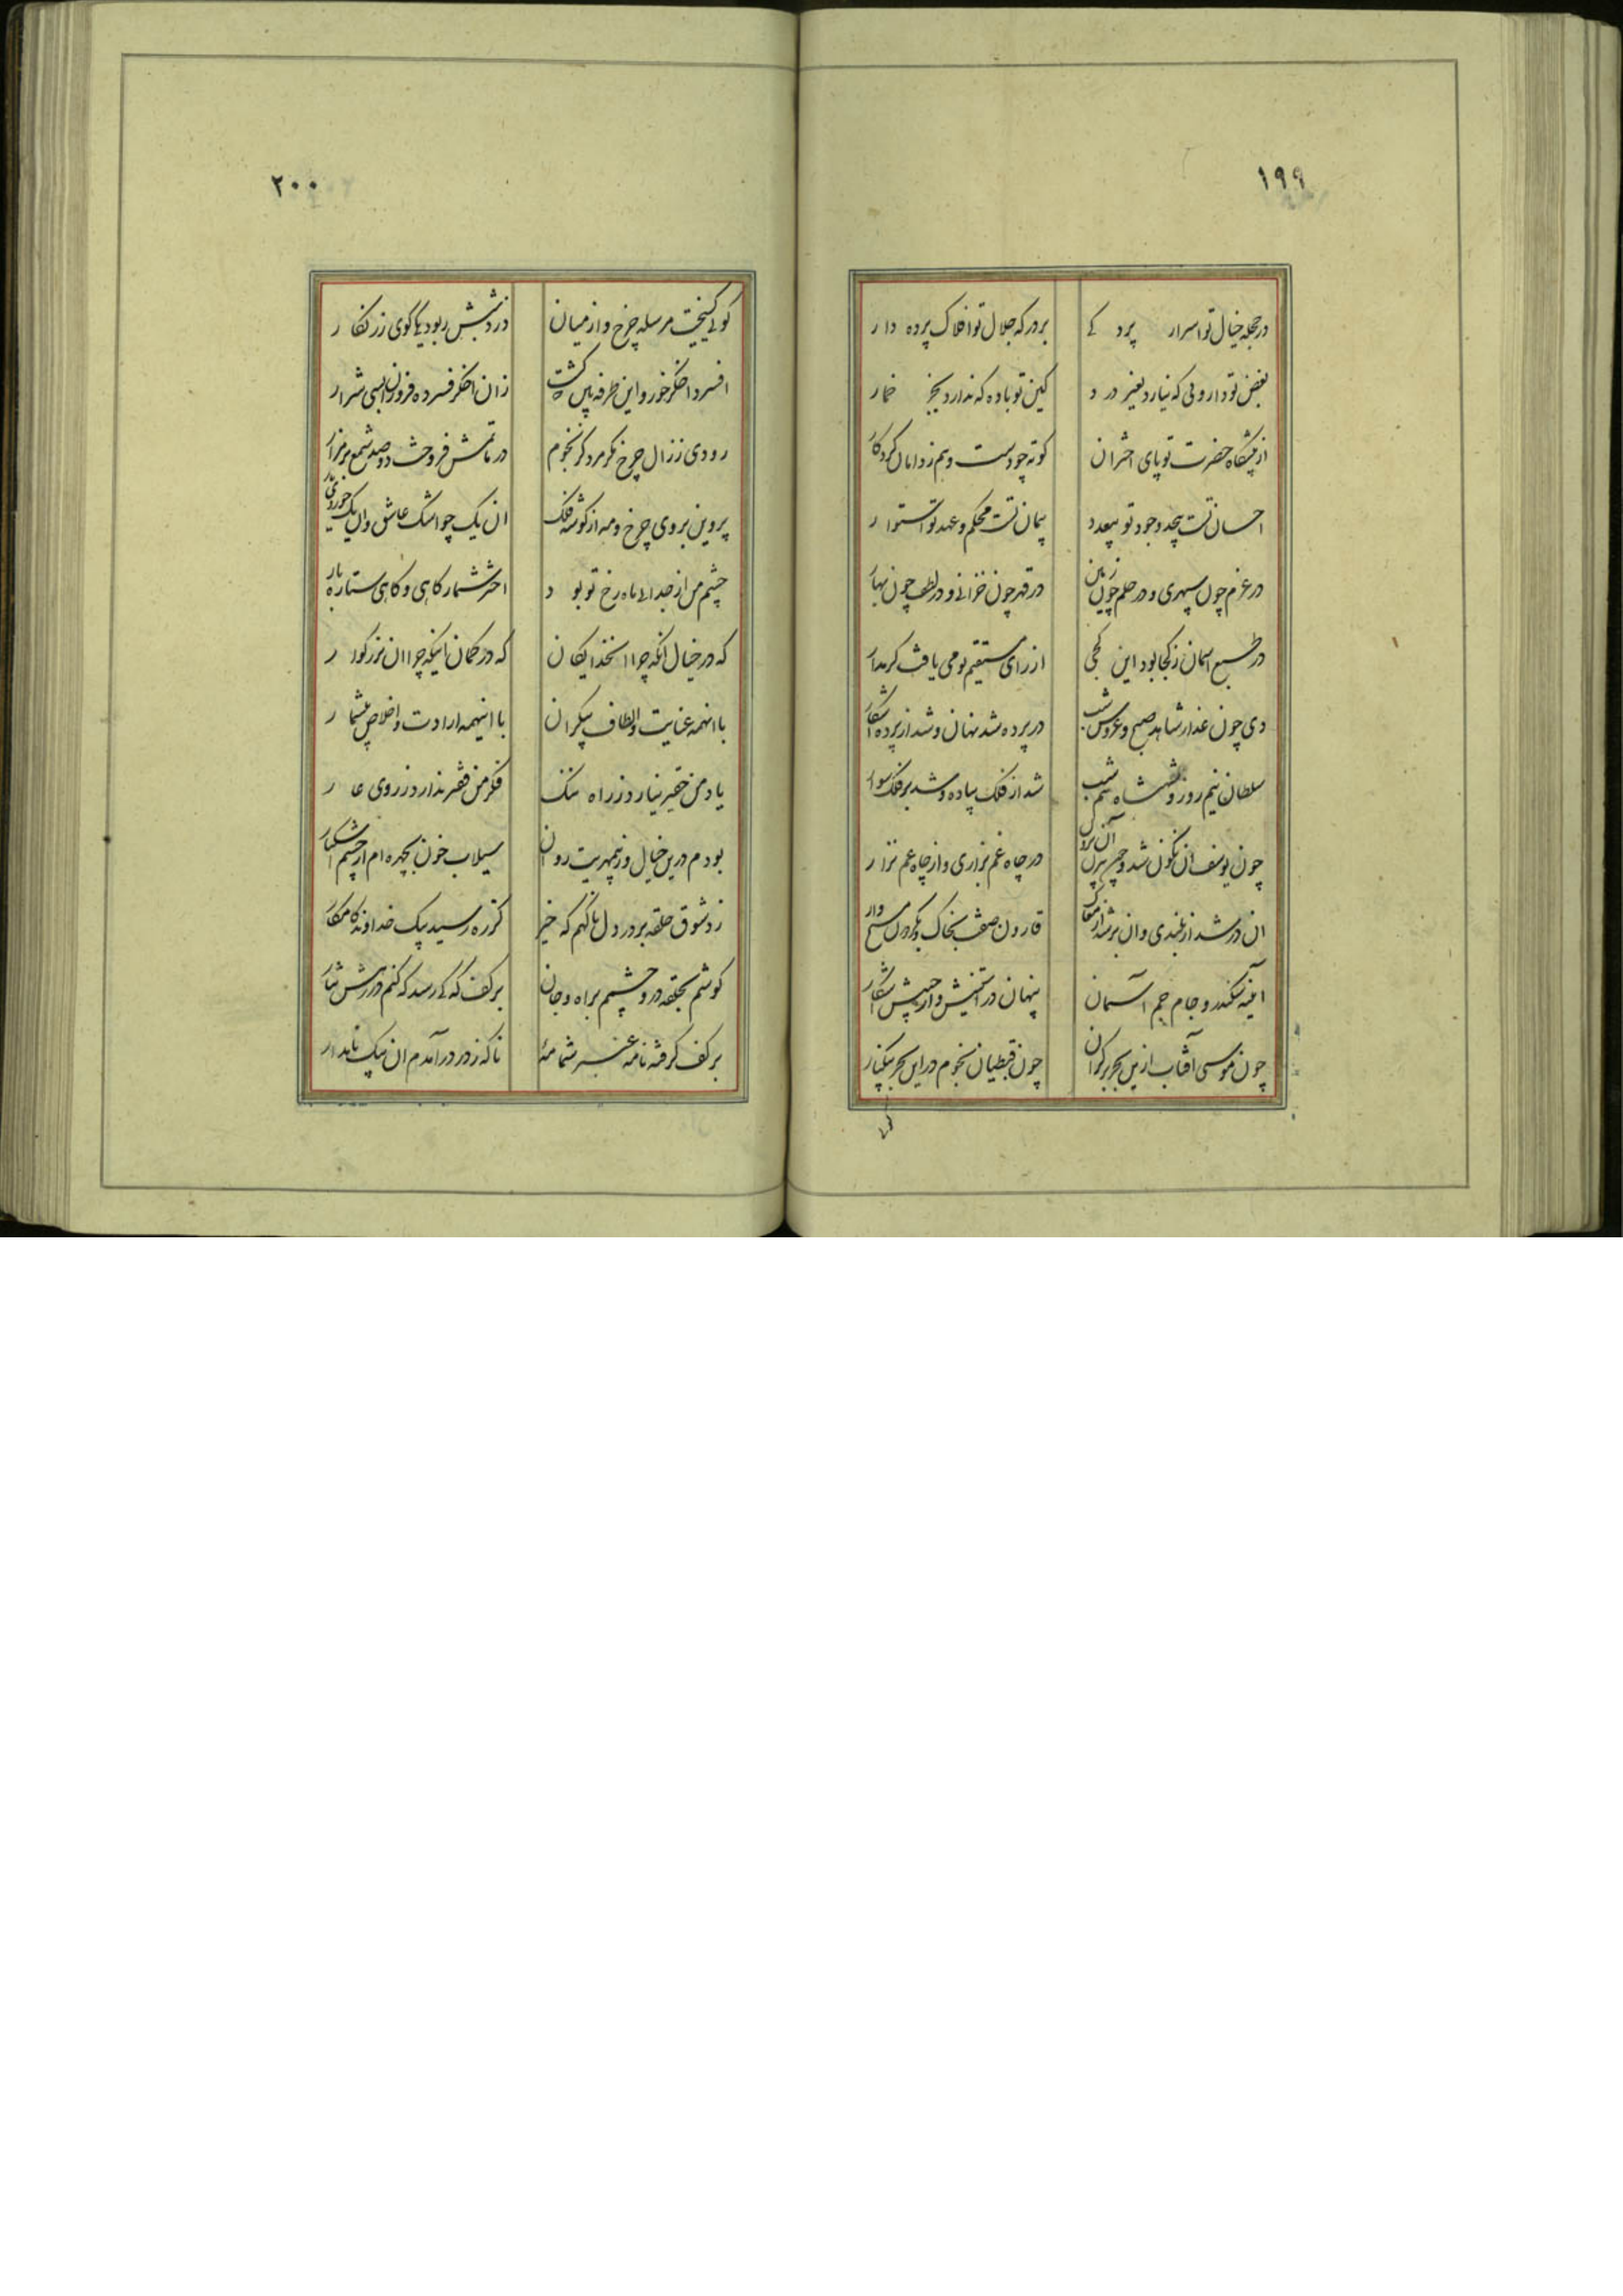 ۱۹۹
در حجله خیال تو اسرار پردگی بر درکه جلال تو افلاک پرده دار
بغض تو داروئی که نیارد بغیر درد کین تو باده که ندارد بجز خمار
از پیشگاه حضرت تو پای اختران کوته چو دست وهم ز دامان کردگار
احسان تست بیحد وجود تو بیعدد پیمان تست محکم و عهد تو استوار
در عزم چون سپهری و در حلم چون زمین در قهر چون خزانی و در لطف چون بهار
در طبع آسمان ز کجا بود این کجی از رای مستقیم تو می یافت کر مدار
دی چون عذار شاهد صبح و عروس شب در پرده شد نهان و شد از پرده آشکار
سلطان نیم روز و شهنشاه نیم شب شد از فلک پیاده و شد بر فلک سوار
چون یوسف آن نگون شد و چون بیژن آن برون در چاه غم بزاری و از چاه غم نزار
ان در شد از بلندی وان بر شد از مغاک قارون صفت بخاک و بگردون مسیح وار
آینه سکندر و جام جم آسمان پنهان در آستینش و از جیبش آشکار
چون موسی آفتاب ازین بحر بر کران چون قبطیان نجوم در این بحر بیکنار
۲۰۰
گوئی کسیخت مرسله چرخ و از میان دزد شبش ربود یکا گوی زرنگار
افسرد اخکر خور و این طرفه بین که گشت زان اخکر فسرده فروزان بسی شرار
رودی ز زال چرخ مکر مرد کز نجوم در ماتمش فروخت دو صد شمع بر مزار
پروین بروی چرخ و مه از گوشه فلک ان یک چو اشک عاشق و ان یک چو روی یار
چشم من از جدائی ماه رخ تو بود اختر شمار کاهی و کاهی ستاره بار
که در خیال آنکه چرا آن خدایکان که در کمان اینکه چرا ان بزرکوار
با آنهمه عنایت و الطاف بیکران با اینهمه ارادت و اخلاص بیشمار
یاد من حقیر نیارد ز راه ننک فکر من فقیر ندارد ز روی عار
بودم درین خیال و ز بیمهریت روان سیلاب خون بچهره ام از چشم اشکبار
زد شوق حلقه بر در دل ناکهم که خیز کز ره رسید پیک خداوند کامکار
کوشم بحلقه در و چشمم براه و جان بر کف که کی رسد که کنم در رهش نثار
ناکه ز در در آمدم ان پیک نامدار بر کف کرفته نامه عنبر شمامه